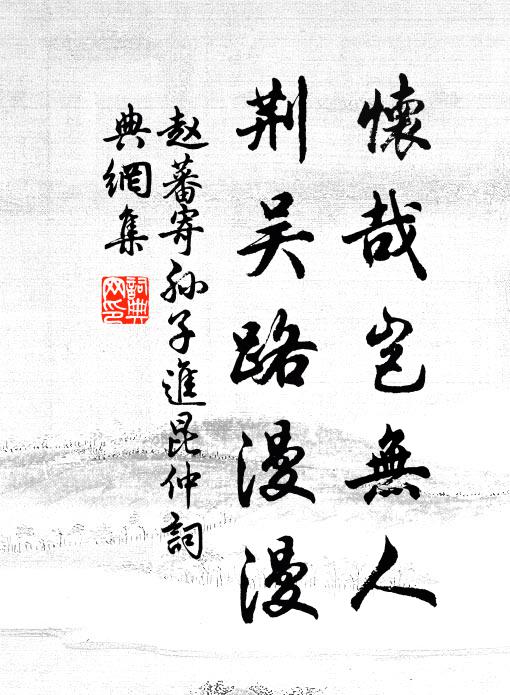 懷哉豈無人
荆吴路漫漫
赵蕃寄孙子進昆仲詞
典網集
詞典
网印